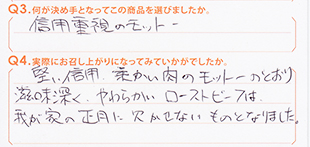 Q3.何が決め手となってこの商品を選びましたか。
信用重視のモットー
Q4.実際にお召し上がりになってみていかがでしたか。
堅い信用、柔かい肉のモットーのとおり
滋味深く、やわらかいローストビーフは、
我が家の正月に欠かせないものとなりました。